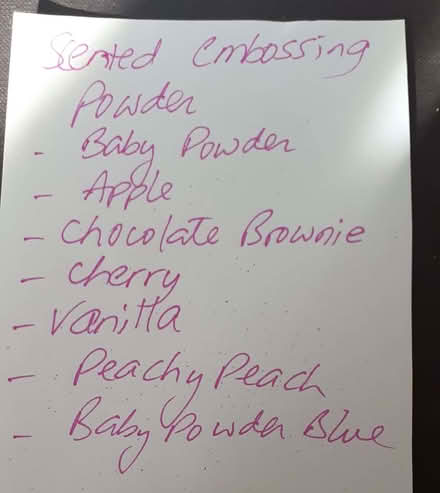 Scented Embossing
Powder
- Baby Powder
- Apple
- Chocolate Brownie
- Cherry
- Vanilla
- Peachy Peach
- Baby Powder Blue